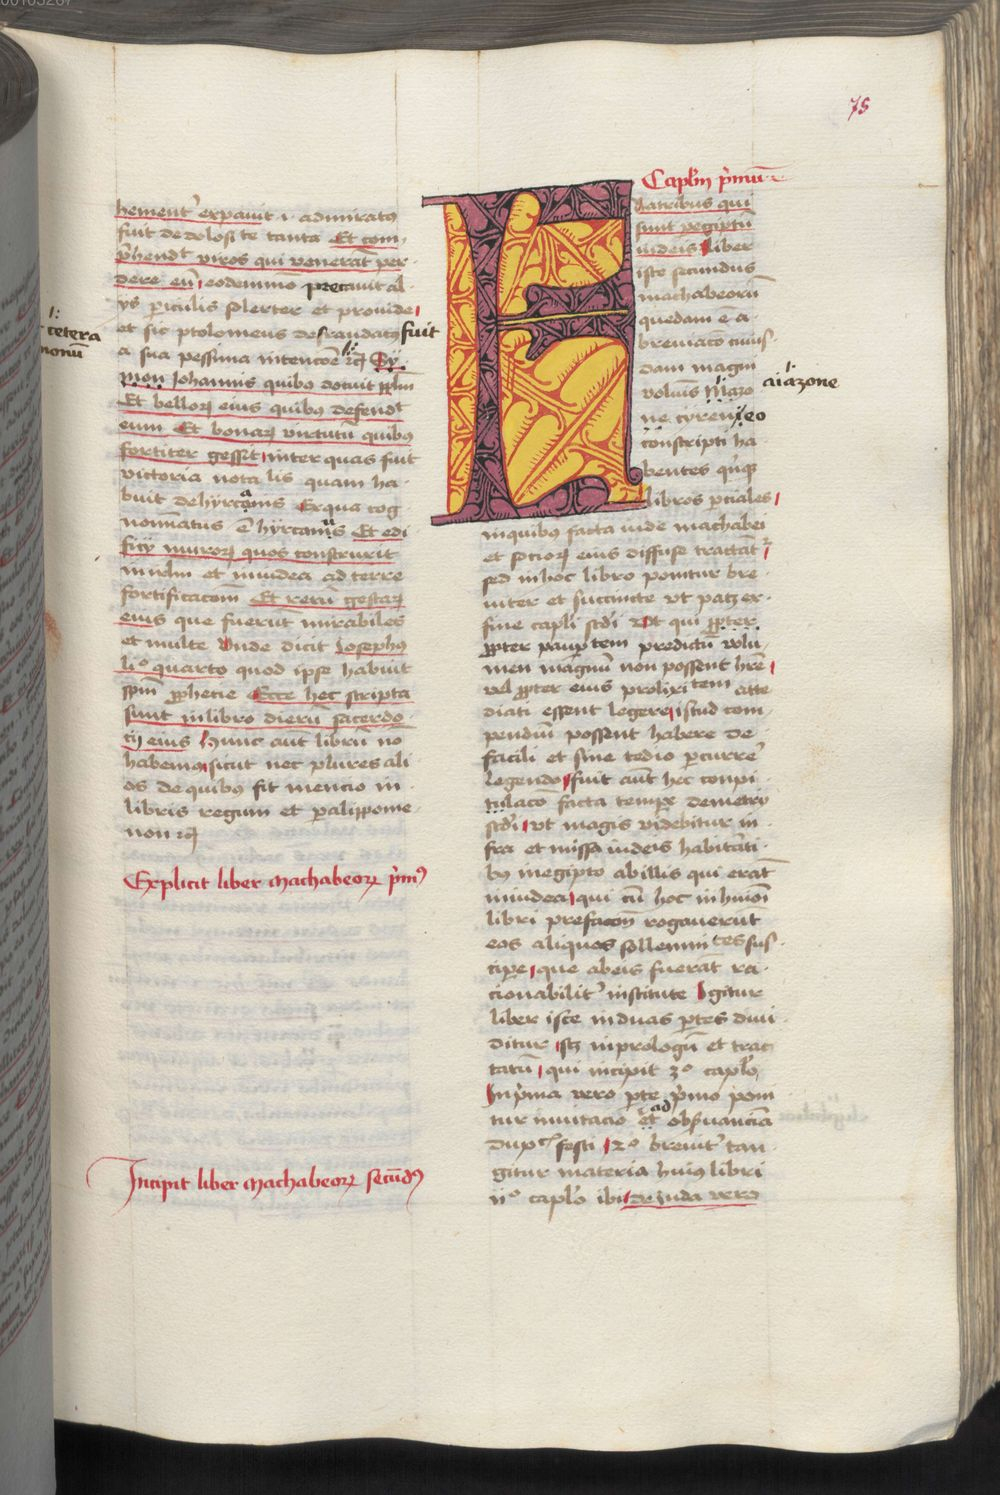 75
hement᷑ expauit ⁊ admiratꝰ
fuit de dolosite tanta Et com
p̄hend᷑ viros qui venerāt per
dere eū eodemmō precauit al
ys periculis solerter et prouide
et sic ptolomeus defraudatꝰ fuit
a sua pessima intencōe Sy
mon Johannis quibꝰ docuit pplm
Et belloꝝ eius quibꝰ defend᷑
eum Et bonaꝝ virtutū quibꝰ
fortiter gessit inter quas fuit
victoria nota lis quam ha
buit de hyrcanis Ex qua cog
nomīatus ē hyrcanus Et edi
ficÿ muroꝝ quos construxit
in irlm et in iudea ad terre
fortificacōem Et rerū gestaꝝ
eius que fuerūt mirabiles
et multe Unde dicit Josephꝰ
liº quarto quod ipse habuit
spm̄ ꝓphetie Ecce hec scripta
sunt in libro dierū sacerdo
cÿ eius Hunc aūt librū nō
habemꝰ sicut nec plures ali
os de quibꝰ fit mencio in
libris regum et paralippome
non
cetera
nonū
Explicit liber machabeoꝝ p̄mꝰ
Incipit liber machabeoꝝ secūdꝰ
Caplm p̄mū
Fratribus qui
sunt p egiptū
iudeis Liber
iste secundus
machabeorū
quedam ē a
breuiacō cuius
dam magni
volumīs
ne cyreneo
aiazone
conscripti ha
bentes qnqꝫ
libros ꝑciales
in quibus facta iude machabei
et socioꝝ eius diffuse tractant᷑
sed in hoc libro ponitur bre
uiter et succincte vt patꝫ ex
fine capli scd̄i Et qui ꝓpter
ꝓpter pauꝑtem predictū volu
men magnū non possent hr̄e
vel ꝓpter eius prolixitem atte
diati essent legere istud com
pendiū possent habere de
facili et sine tedio ꝑcurre᷑
legendo fuit aūt hec conpi
tulacō facta tempe demetrÿ
scd̄i vt magis videbitur in
fra et missa iudeis habitāti
bꝰ in egipto ab illis qui erāt
in iudea qui cū hoc in huiꝰmōi
libri prefacōe rogauerūt
eos aliquas sollemnitates sus
cipe que ab eis fuerāt ra
cionabilit᷑ institute Igitur
liber iste in duas ꝑtes diui
ditur scꝫ in prologū et trac
tatū qui incipit 3º caplo
In p̄ma vero ꝑte p̄mo poni
tur inuitacio et ad obseruanciā
dupᷓcˢ festi 2º breuit᷑ tan
gitur materia huiꝰ libri
iiº caplo ibi de Juda vero